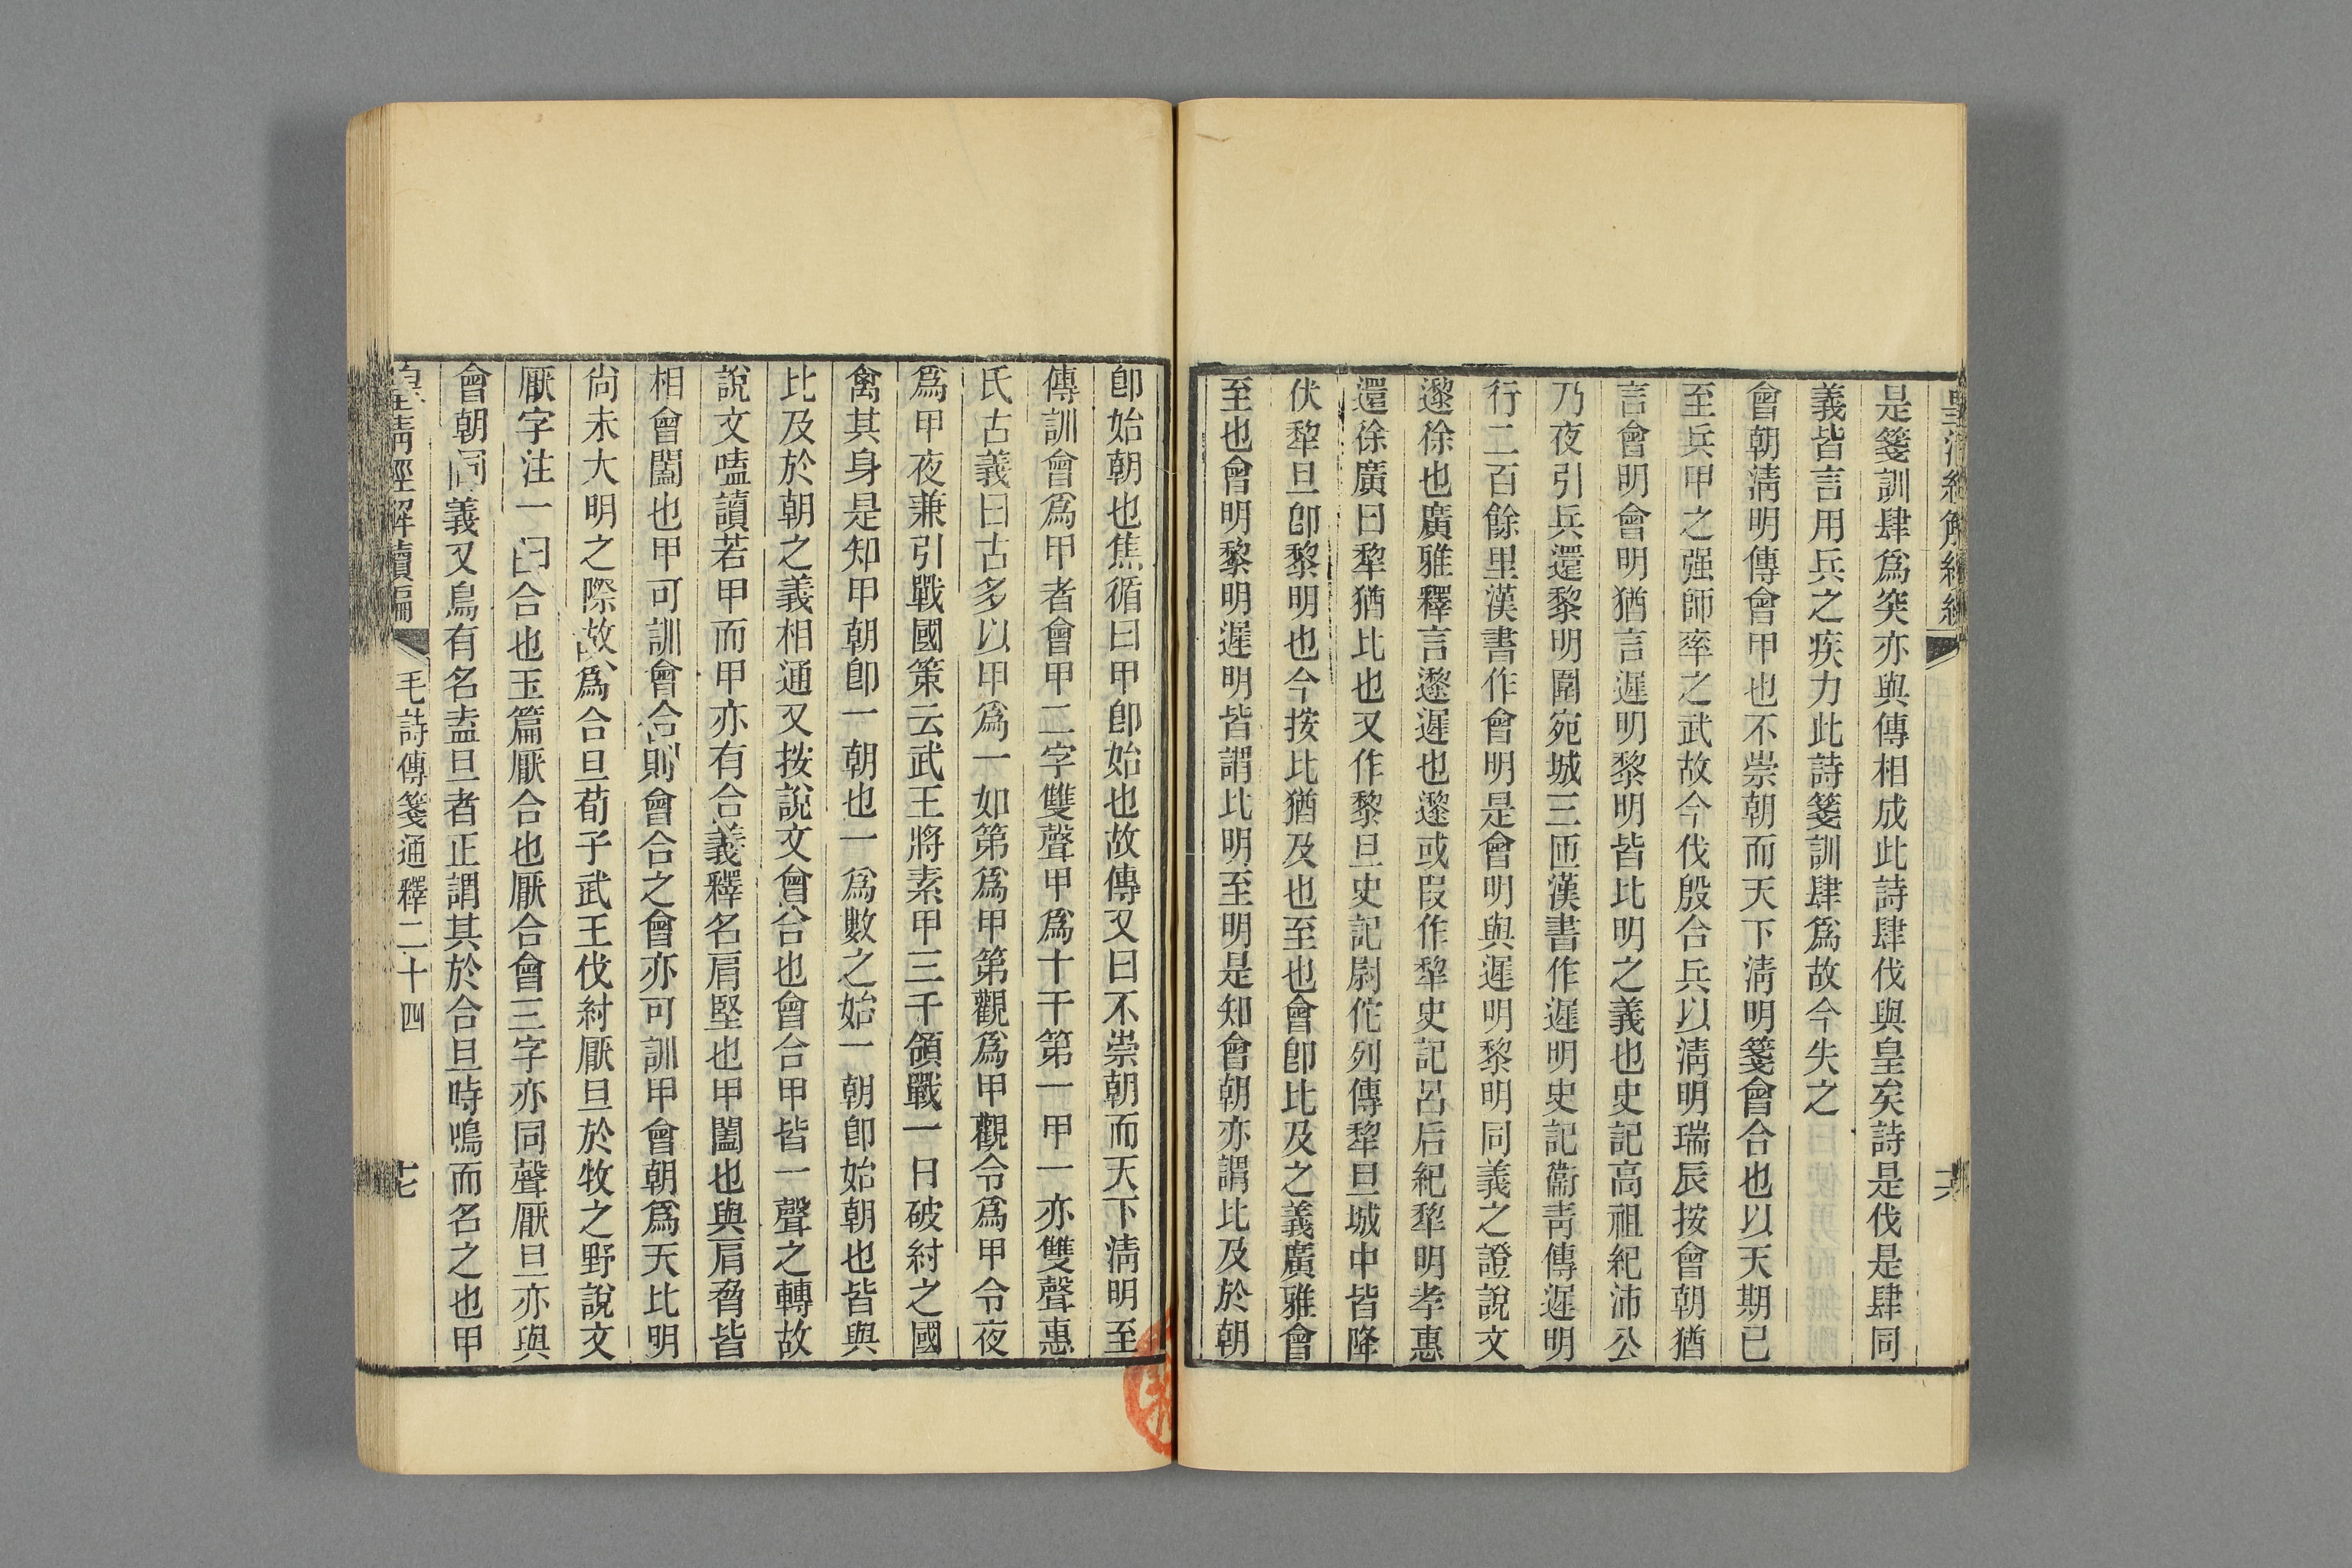 皇清經解續編
六
是箋訓肆爲突亦與傳相成此詩肆伐與皇矣詩是伐是肆同
義皆言用兵之疾力此詩箋訓肆爲故今失之
會朝淸明傳會甲也不崇朝而天下淸明箋會合也以天期已
至兵甲之强師率之武故今伐殷合兵以淸明瑞辰按會朝猶
言會明會明猶言遲明黎明皆比明之義也史記高祖紀沛公
乃夜引兵還黎明圍宛城三匝漢書作遲明史記衞靑傳遲明
行二百餘里漢書作會明是會明與遲明黎明同義之證說文
邌徐也廣雅釋言邌遲也邌或叚作犂史記呂后紀犂明孝惠
還徐廣曰犂猶比也又作黎旦史記尉佗列傳犂旦城中皆降
伏犂旦卽黎明也今按比猶及也至也會卽比及之義廣雅會
至也會明黎明遲明皆謂比明至明是知會朝亦謂比及於朝
卽始朝也焦循曰甲卽始也故傳又曰不崇朝而天下淸明至
傳訓會爲甲者會甲二字雙聲甲爲十干第一甲一亦雙聲惠
氏古義曰古多以甲爲一如第爲甲第觀爲甲觀令爲甲令夜
爲甲夜兼引戰國策云武王將素甲三千領戰一日破紂之國
禽其身是知甲朝卽一朝也一爲數之始一朝卽始朝也皆與
比及於朝之義相通又按說文會合也會合甲皆一聲之轉故
說文嗑讀若甲而甲亦有合義釋名肩堅也甲闔也與肩脅皆
相會闔也甲可訓會合則會合之會亦可訓甲會朝爲天比明
尙未大明之際故爲合旦荀子武王伐紂厭旦於牧之野說文
厭字注一曰合也玉篇厭合也厭合會三字亦同聲厭旦亦與
會朝同義又鳥有名盍旦者正謂其於合旦時鳴而名之也甲
皇淸經解續編
毛詩傳箋通釋二十四
七